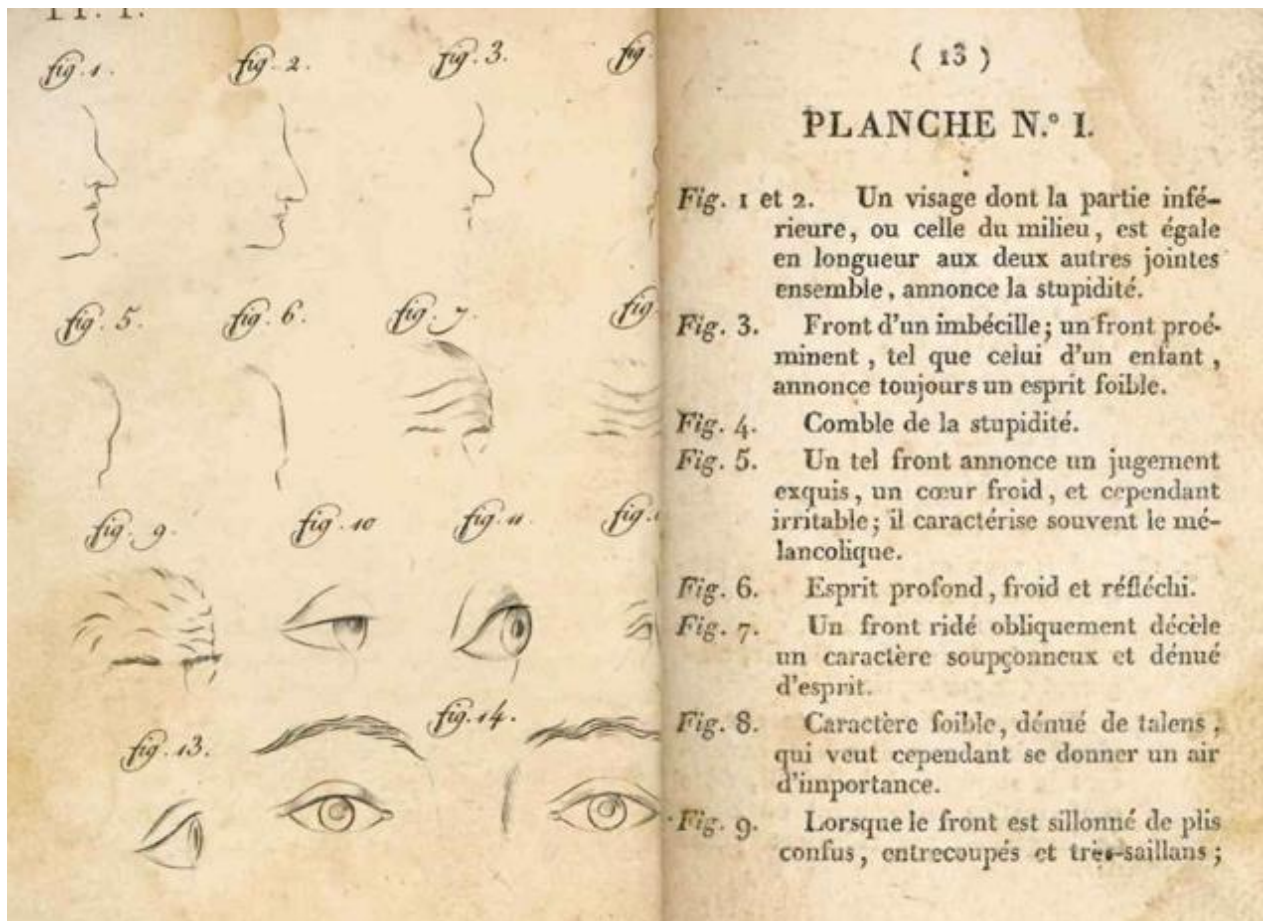 fig. 1.
fig. 2.
fig. 3.
fig.
fig. 5.
fig. 6.
fig. 7.
fig.
fig. 9.
fig. 10
fig. 11
fig.
fig. 13.
fig. 14.
( 13 )
PLANCHE N.° I.
Fig. 1 et 2. Un visage dont la partie infé-
rieure, ou celle du milieu, est égale
en longueur aux deux autres jointes
ensemble, annonce la stupidité.
Fig. 3. Front d'un imbécille; un front proé-
minent, tel que celui d'un enfant,
annonce toujours un esprit foible.
Fig. 4. Comble de la stupidité.
Fig. 5. Un tel front annonce un jugement
exquis, un cœur froid, et cependant
irritable; il caractérise souvent le mé-
lancolique.
Fig. 6. Esprit profond, froid et réfléchi.
Fig. 7. Un front ridé obliquement décèle
un caractère soupçonneux et dénué
d'esprit.
Fig. 8. Caractère foible, dénué de talens,
qui veut cependant se donner un air
d'importance.
Fig. 9. Lorsque le front est sillonné de plis
confus, entrecoupés et très-saillans;